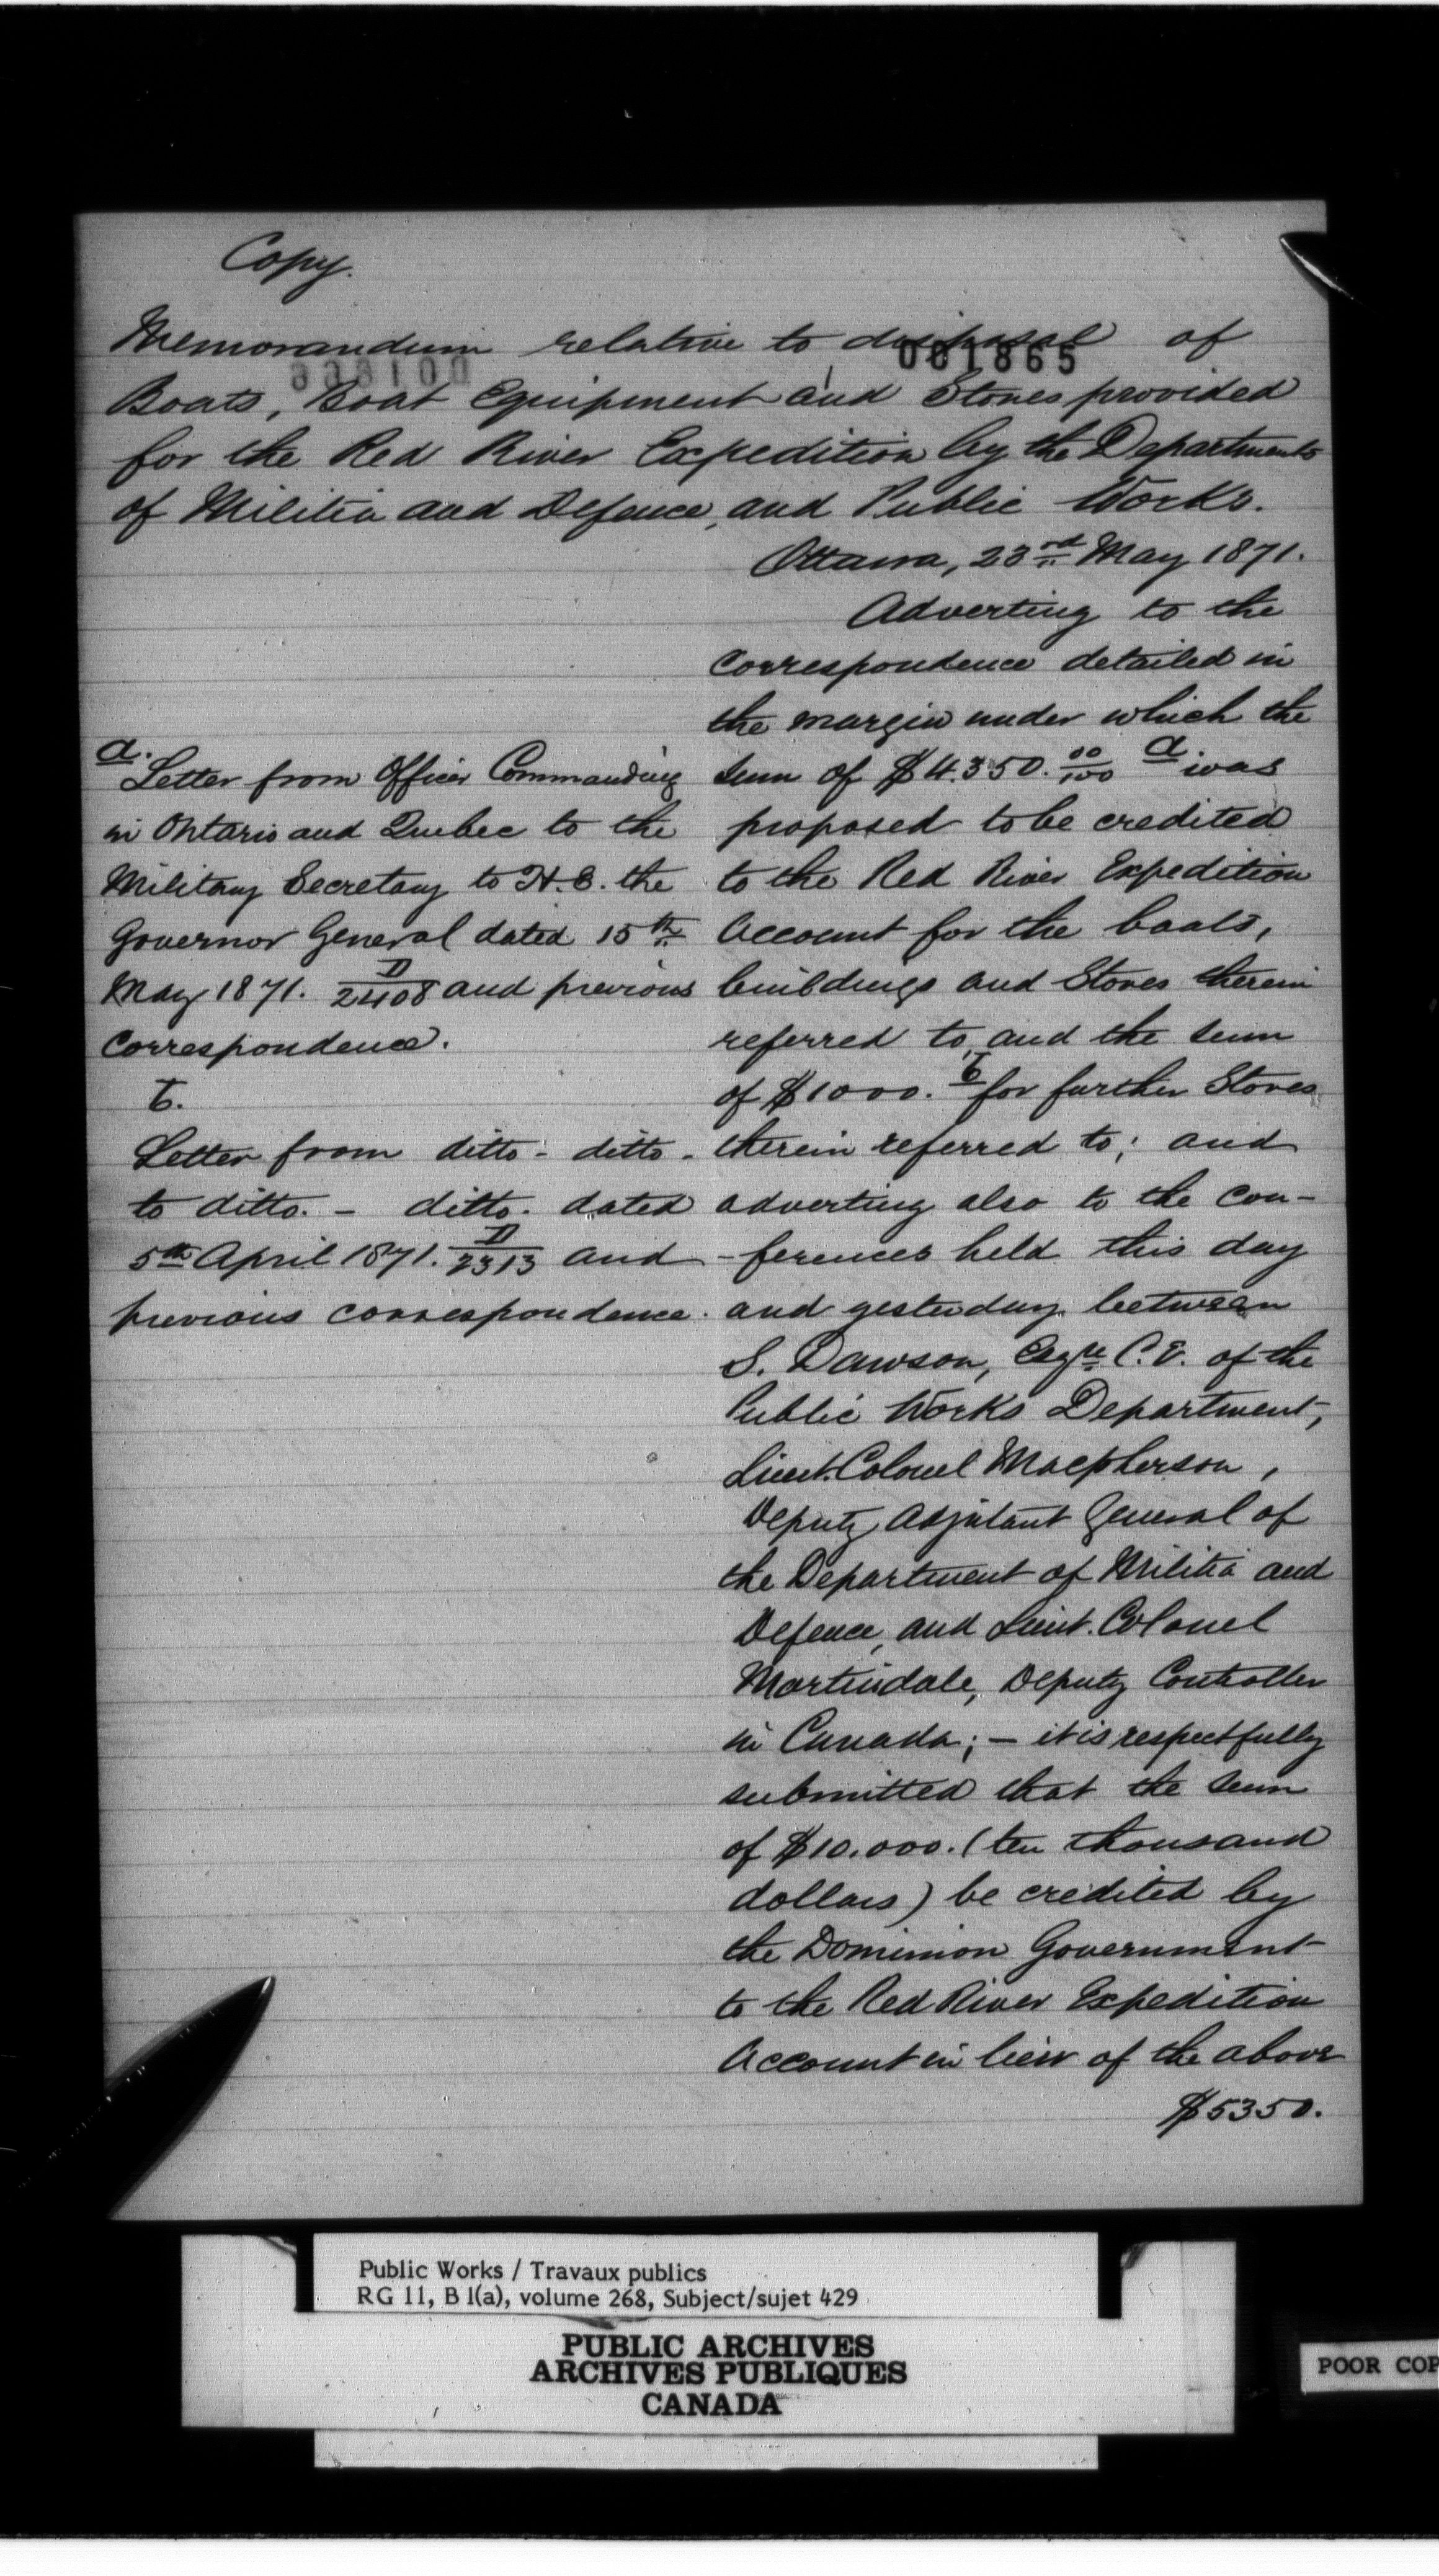 Copy.
Memorandum relative to disposal of
081865
Boats, Boat Equipment and Stores provided
for the Red River Expedition by the Departments
of Militia and Defence, and Public Works.
Ottawa, 23rd May 1871.
Adverting to the
correspondence detailed in
the margin under which the
sum of $4.350. 00/100 a. was
proposed to be credited
to the Red River Expedition
Account for the boats,
buildings and Stores therein
referred to, and the sum
of $1000. b for further Stores
therein referred to; and
adverting also to the con-
-ferences held this day
and yesterday between
S. Dawson, Esqre C.E. of the
Public Works Department,
Lieut. Colonel Macpherson,
Deputy Adjutant General of
the Department of Militia and
Defence, and Lieut. Colonel
Martindale, Deputy Controller
in Canada; — it is respectfully
submitted that the sum
of $10.000. (ten thousand
dollars) be credited by
the Dominion Government
to the Red River Expedition
Account in lieu of the above
$5350.
a.
Letter from Officer Commanding
in Ontario and Quebec to the
Military Secretary to H.E. the
Governor General dated 15th
May 1871. D/2408 and previous
correspondence.
b.
Letter from ditto - ditto -
to ditto. - ditto. dated
5th April 1871. D/2313 and
previous correspondence.
Public Works / Travaux publics
RG 11, B 1(a), volume 268, Subject/sujet 429
PUBLIC ARCHIVES
ARCHIVES PUBLIQUES
CANADA
POOR COP